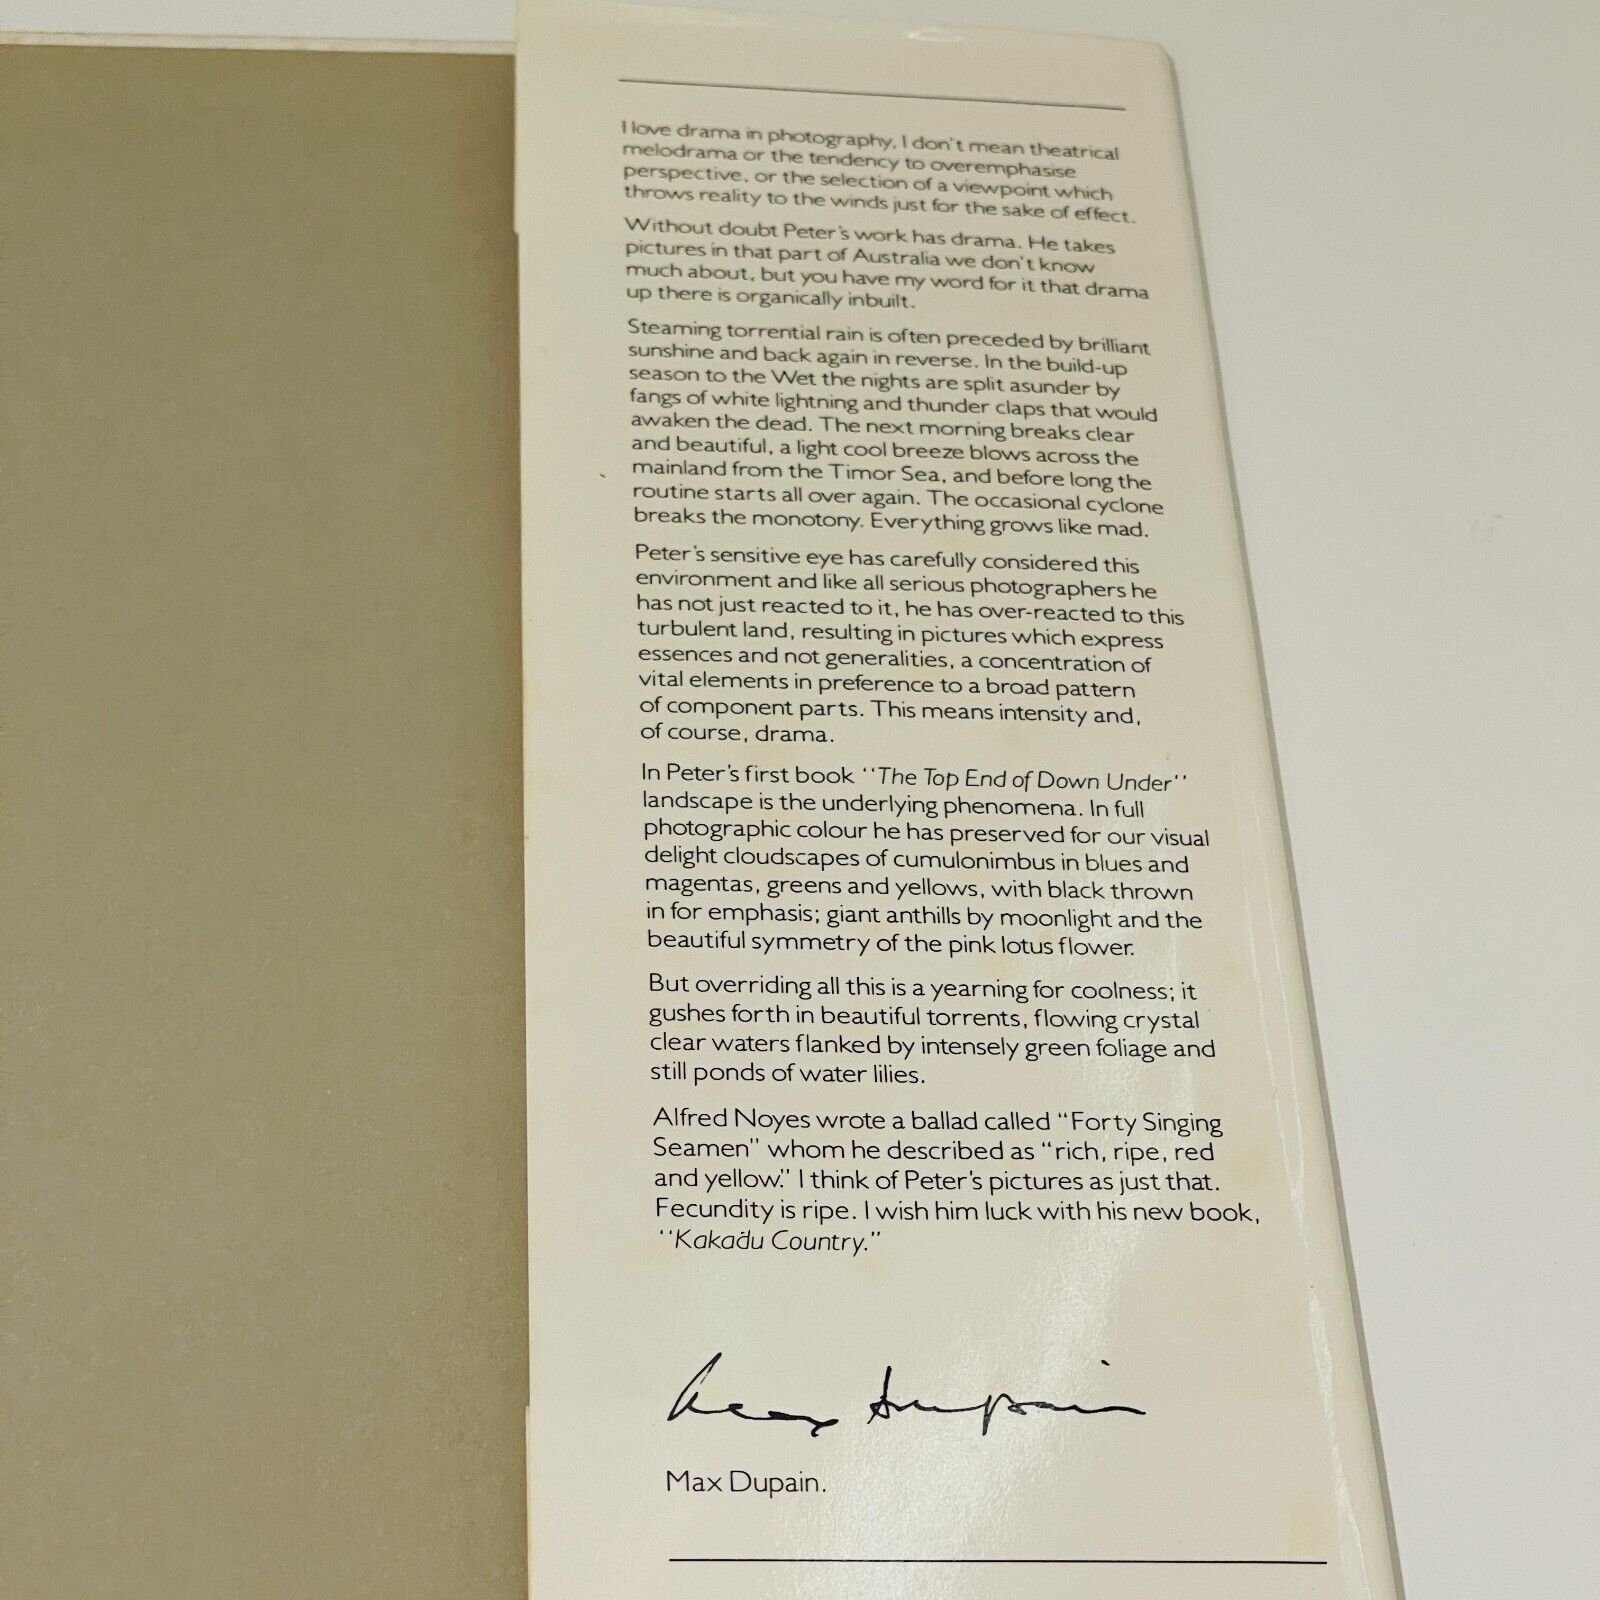 I love drama in photography, I don't mean theatrical
melodrama or the tendency to overemphasise
perspective, or the selection of a viewpoint which
throws reality to the winds just for the sake of effect.
Without doubt Peter's work has drama. He takes
pictures in that part of Australia we don't know
much about, but you have my word for it that drama
up there is organically inbuilt.
Steaming torrential rain is often preceded by brilliant
sunshine and back again in reverse. In the build-up
season to the Wet the nights are split asunder by
fangs of white lightning and thunder claps that would
awaken the dead. The next morning breaks clear
and beautiful, a light cool breeze blows across the
mainland from the Timor Sea, and before long the
routine starts all over again. The occasional cyclone
breaks the monotony. Everything grows like mad.
Peter's sensitive eye has carefully considered this
environment and like all serious photographers he
has not just reacted to it, he has over-reacted to this
turbulent land, resulting in pictures which express
essences and not generalities, a concentration of
vital elements in preference to a broad pattern
of component parts. This means intensity and,
of course, drama.
In Peter's first book "The Top End of Down Under"
landscape is the underlying phenomena. In full
photographic colour he has preserved for our visual
delight cloudscapes of cumulonimbus in blues and
magentas, greens and yellows, with black thrown
in for emphasis; giant anthills by moonlight and the
beautiful symmetry of the pink lotus flower.
But overriding all this is a yearning for coolness; it
gushes forth in beautiful torrents, flowing crystal
clear waters flanked by intensely green foliage and
still ponds of water lilies.
Alfred Noyes wrote a ballad called "Forty Singing
Seamen" whom he described as "rich, ripe, red
and yellow." I think of Peter's pictures as just that.
Fecundity is ripe. I wish him luck with his new book,
"Kakadu Country."
Max Dupain
Max Dupain.